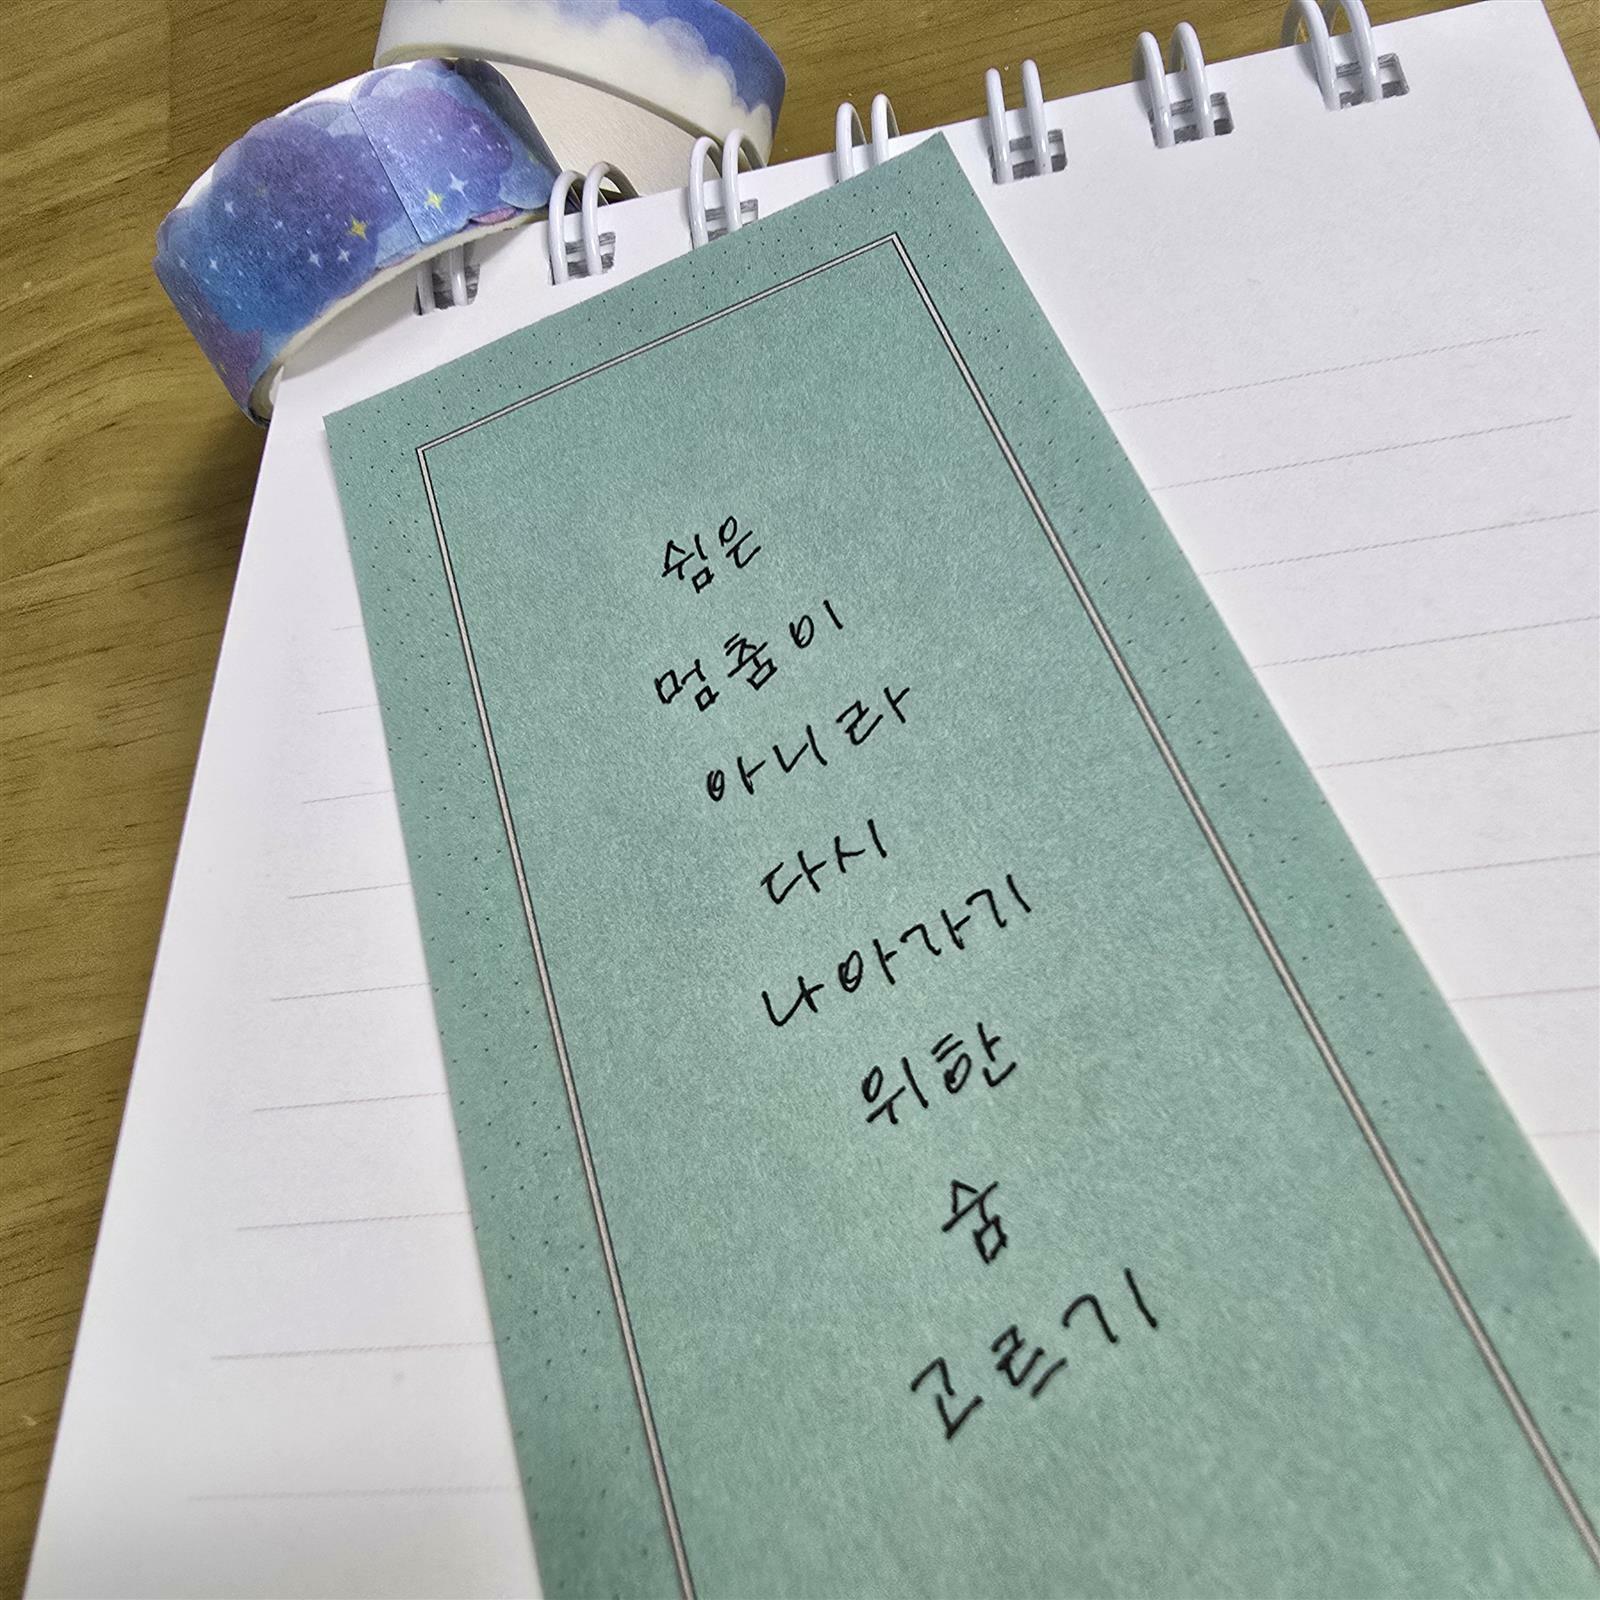 쉼은
멈춤이
아니라
다시
나아가기
위한
숨
고르기